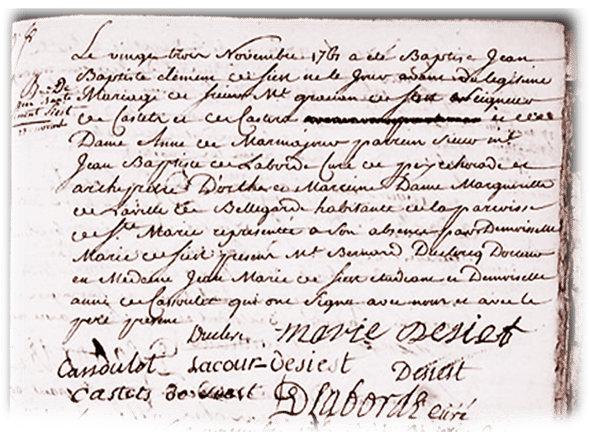 Bme De
Jean Bapte
Clement Siest
Le vingt trois Novembre 1761 a été Baptisé Jean
Baptiste clement de siest né le Jour du legitime
Mariage de sieur Mr de siest seigneur
de Castets et de Castera et de
Dame Anne de Marmajour parrein sieur
Jean Baptise de Laborde Curé de peyrehorade et
archiprètre D'orthe et Marreine Dame Marguerite
de Laville de Bellegard habitante de la parroisse
de Ste Marie represantée a son absence par Demoiselle
Marie de siest presens Mr Bernard Duclercq Docteur
en Medecine Jean Marie de siest etudiant et Demoiselle
anne de Candoulot qui ont signé avec nous et avec le
pere present
Duclerc marie Desiest
Candoulot Lacour-Desiest Desiest
Castets Dlaborde curé